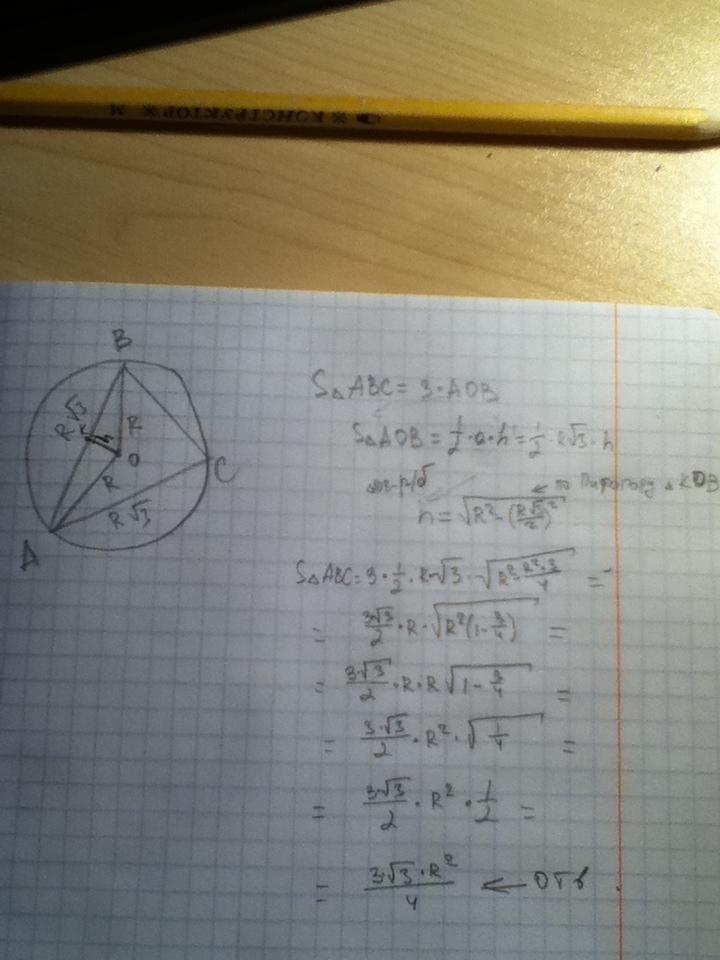 КОНСТРУКТОР М
B
R√3
K
R
O
R
C
R√3
A
S△ABC = 3·AOB
S△AOB = 1/2·a·h = 1/2·R√3·h
р/б
← по Пифагору △KOB
h = √(R² - (R√3/2)²)
S△ABC = 3·1/2·R√3·√(R² R²·3/4) =
= 3√3/2·R·√(R²(1-3/4)) =
= 3·√3/2·R·R√(1-3/4) =
= 3·√3/2·R²·√(1/4) =
= 3√3/2·R²·1/2 =
= 3√3·R²/4 ← отв.